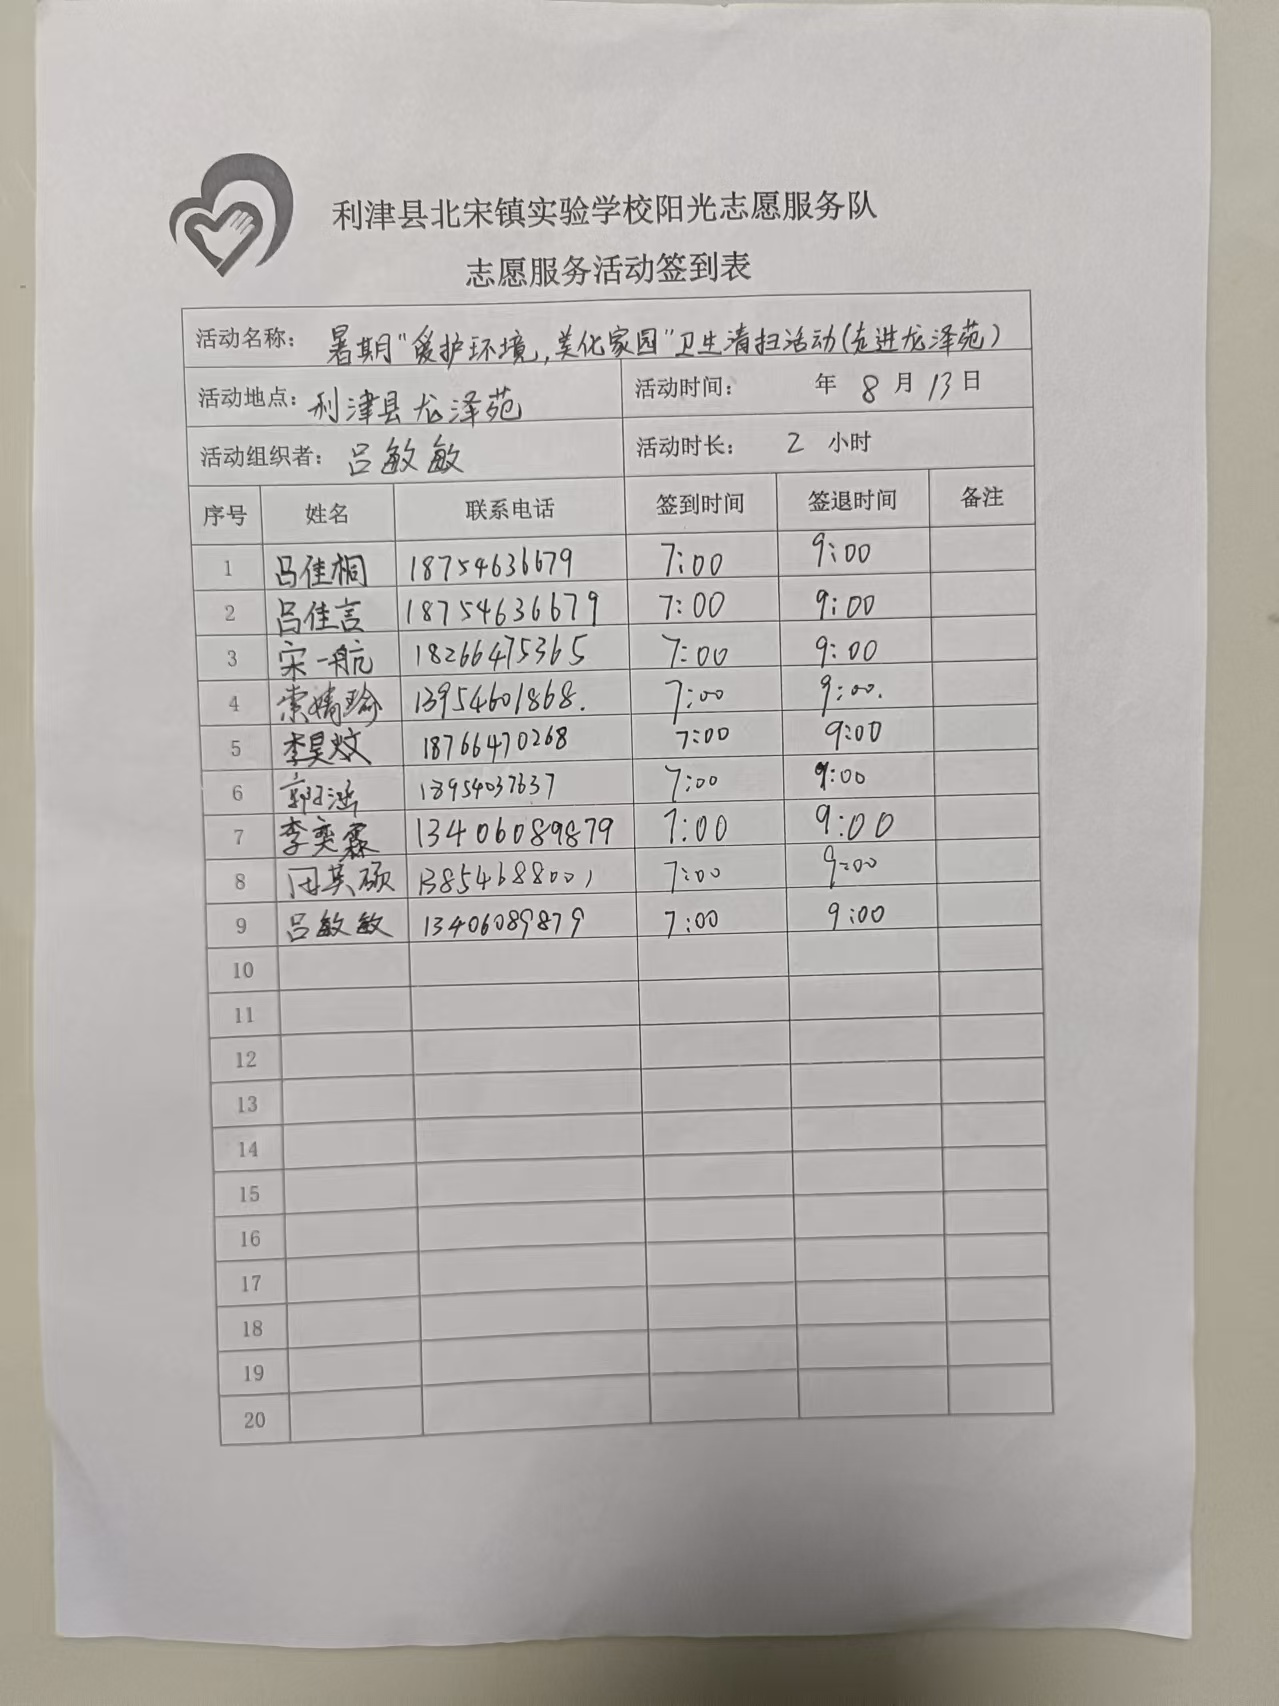 利津县北宋镇实验学校阳光志愿服务队
志愿服务活动签到表
活动名称： 暑期“爱护环境,美化家园”卫生清扫活动(走进龙泽苑)
活动地点：利津县龙泽苑 活动时间： 年 8 月 13 日
活动组织者：吕敏敏 活动时长： 2 小时
序号 姓名 联系电话 签到时间 签退时间 备注
1 吕佳桐 18754636679 7:00 9:00
2 吕佳言 18754636679 7:00 9:00
3 宋一航 18266475365 7:00 9:00
4 13954601868. 7:00 9:00.
5 李昊炆 18766470268 7:00 9:00
6 18954037637 7:00 9:00
7 李奕霖 13406089879 7:00 9:00
8 田英硕 13854688001 7:00 9:00
9 吕敏敏 13406089879 7:00 9:00
10
11
12
13
14
15
16
17
18
19
20